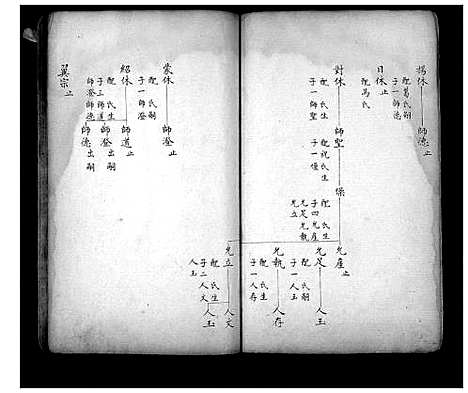 揚休
配葛氏嗣
子一師德
師德止
日休止
配馬氏
對休
配氏生
子一師聖
師聖
配祝氏生
子一
配氏生
子四允產
允足允執
允立
允產止
允足
配氏嗣
子一人玉
人玉
允執
配氏生
子一人存
人存
允立
配氏生
子二人文
人玉
人文
人玉
蒙休
配氏嗣
子一師澄
師澄止
紹休
配氏生
子三師道
師澄師德
師道止
師澄出嗣
師德出嗣
翼宗止